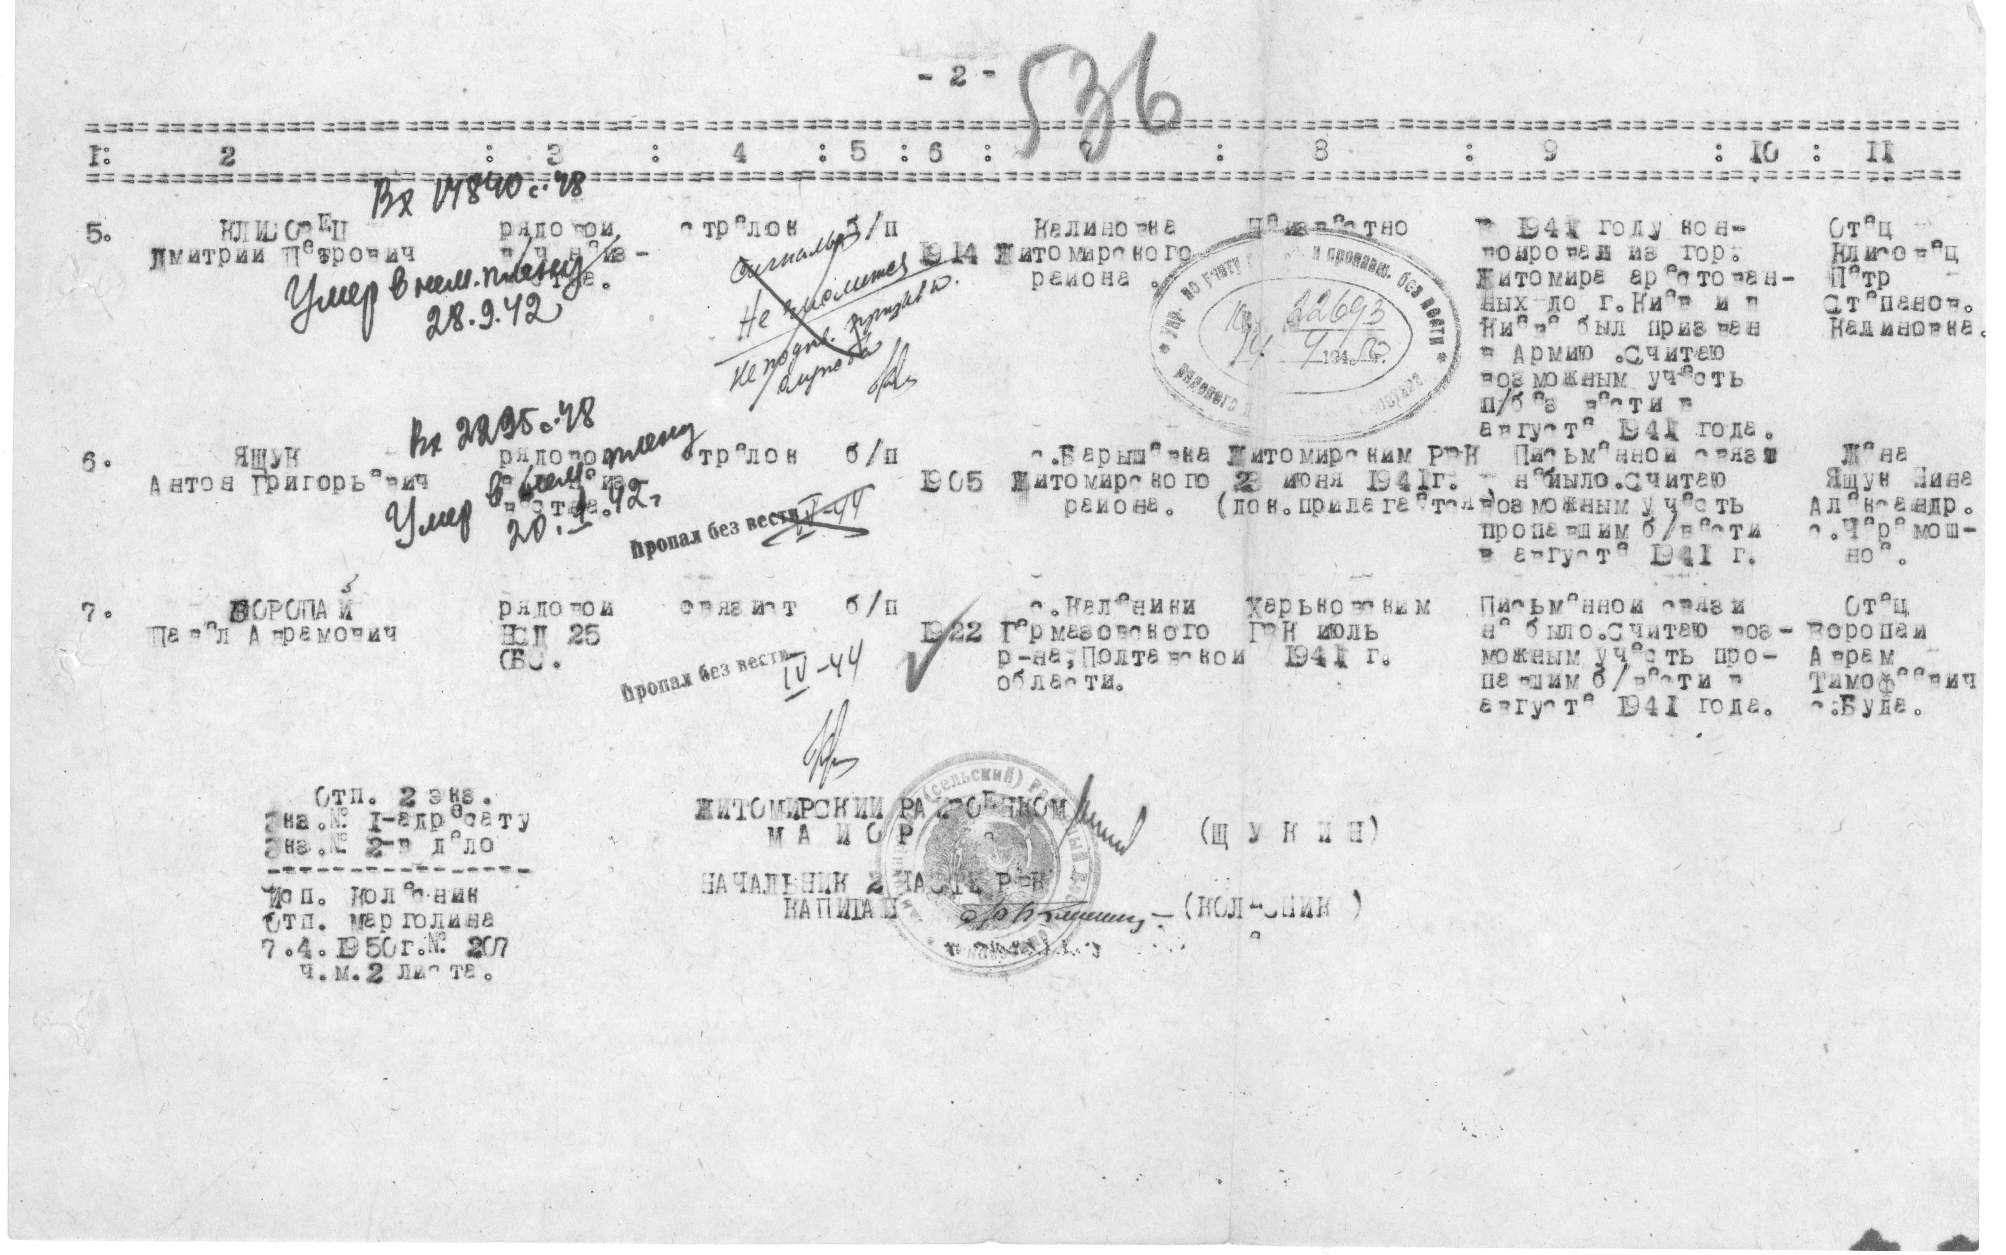 - 2 -
536
1: 2 : 3 : 4 : 5 : 6 : 7 : 8 : 9 : 10 : 11
Вх 17840 с. 48
5. КЛИСОВЕЦ рядовой стрелок б/п Калиновка Неизвестно в 1941 году кон- Отец
Дмитрий Петрович в/ч неиз- 1914 Житомирского воировал из гор. Клисовец
района. Житомира арестован- Петр
ных до г.Киев и в Степанов.
Киеве был призван Калиновка.
в Армию.Считаю
возможным участь
п/без вести в
августе 1941 года.
Умер в нем. плену
28.9.42
Не
Упр. по учету и пропавш. без вести
22693
194
Вх 2295 с. 48
6. ЯЩУК рядовой стрелок б/п с.Барышевка Житомирским РВК Письменной связи Жена
Антон Григорьевич неиз- 1905 Житомирского 23 июня 1941г. не было.Считаю Ящук Нина
вестна. района. (док.прилагается) возможным участь Александр.
пропавшим б/вести с.Черемош-
в августе 1941 г. ное.
Умер в нем. плену
20. 42г
Пропал без вести IV-44
7. ВОРОПАЙ рядовой связист б/п с.Каленики Харьковским Письменной связи Отец
Павел Аврамович ПСД 25 1922 Гермазовского ГВК июль не было.Считаю воз- Воропай
ОБС. р-на,Полтавской 1941 г. можным участь про- Аврам
области. павшим б/вести в Тимофеевич
августе 1941 года. с.Буда.
Пропал без вести IV-44
Отп. 2 экз. ЖИТОМИРСКИЙ РАЙВОЕНКОМ
Экз.№ 1-адресату МАЙОР (ЩУКИН)
Экз.№ 2-в дело
Исп. Колесник НАЧАЛЬНИК 2 ЧАСТИ РВК
Отп. Марголина КАПИТАН (КОЛЕСНИК)
7.4.1950г.№ 207
ч.м.2 листа.
(сельский)